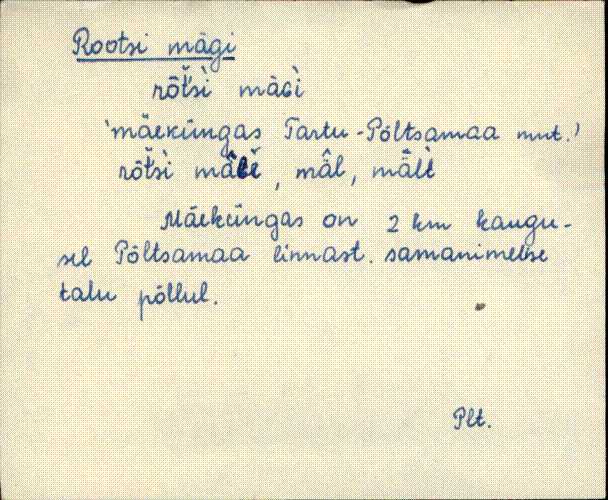 Rootsi mägi
rõt̆'sì mäɢì
'mäeküngas Tartu-Põltsamaa mnt.'
rõt̆sì , mä̂l , mä̀lt
Mäeküngas on 2 km kaugu-
sel Põltsamaa linnast samanimelise
talu põllul.
Plt.